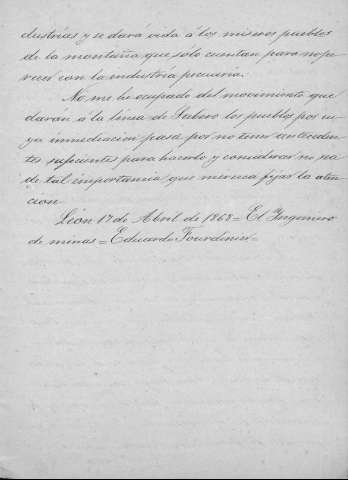 dustrias y se dará vida á los miseros pueblos
de la montaña que sólo cuentan para no pe-
recer con la industria pecuaria.
No me he ocupado del movimiento que
darán á la linea de Sabero los pueblos por cu-
ya inmediacion pasa por no tener anteceden-
tes suficientes para hacerlo y considerar no sea
de tal importancia que merezca fijar la aten-
cion
León 17 de Abril de 1868 = El Ingeniero
de minas = Eduardo Fourdinier =